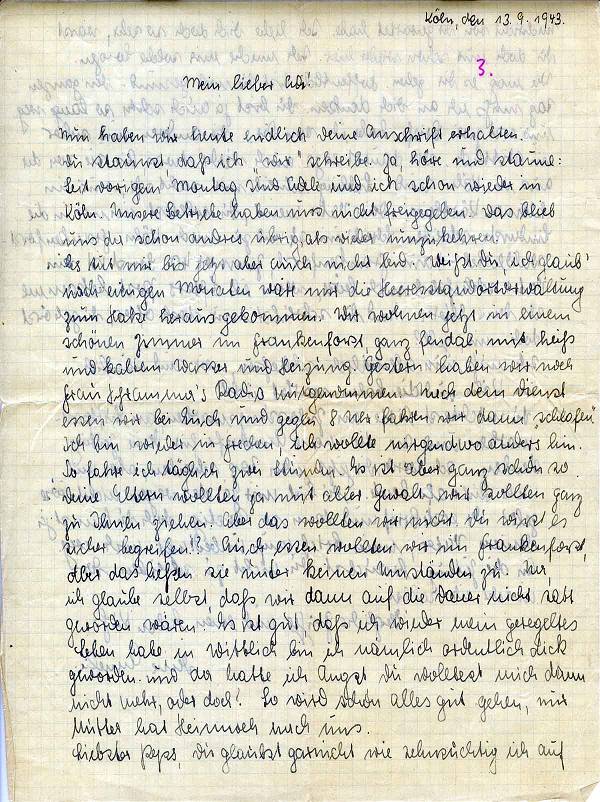 Köln, den 13.9.1943.
3.
Mein lieber
Nun haben wir heute endlich Deine Anschrift erhalten.
Du staunst, daß ich "wir" schreibe. Ja, höre und staune:
Seit vorigem Montag sind Adele und ich schon wieder in
Köln. Unsere Betriebe haben uns nicht freigegeben. Das blieb
uns da schon anderes übrig, als wieder umzukehren.
Es tut mir bis jetzt aber auch nicht leid. Weißt Du, ich glaub'
nach einigen Monaten wäre mir die Heeresstandortverwaltung
zum Halse heraus gekommen. Wir wohnen jetzt in einem
schönen Zimmer im Frankenforst, ganz feudal mit heiß
und kalten Wasser und Heizung. Gestern haben wir noch
Frau Schramma's Radio mitgenommen. Nach dem Dienst
essen wir bei Euch und gegen 8 Uhr fahren wir dann "schlafen"
Ich bin wieder in Frechen, ich wollte nirgendwo anders hin.
So fahre ich täglich zwei Stunden. Es ist aber ganz schön so
Deine Eltern wollten ja mit aller Gewalt, wir sollten ganz
zu Ihnen ziehen. Aber das wollten wir nicht. Du wirst es
sicher begreifen!? Auch essen wollten wir im Frankenforst,
aber das ließen sie unter keinen Umständen zu. Na,
ich glaube selbst, daß wir dann auf die Dauer nicht satt
geworden wären. Es ist gut, daß ich wieder mein geregeltes
Leben habe in Wittlich bin ich nämlich ordentlich dick
geworden und da hatte ich Angst Du wolltest mich dann
nicht mehr, oder doch? So wird schon alles gut gehen, nur
Mutter hat Heimweh nach uns.
Liebster Peps, Du glaubst garnicht wie sehnsüchtig ich auf